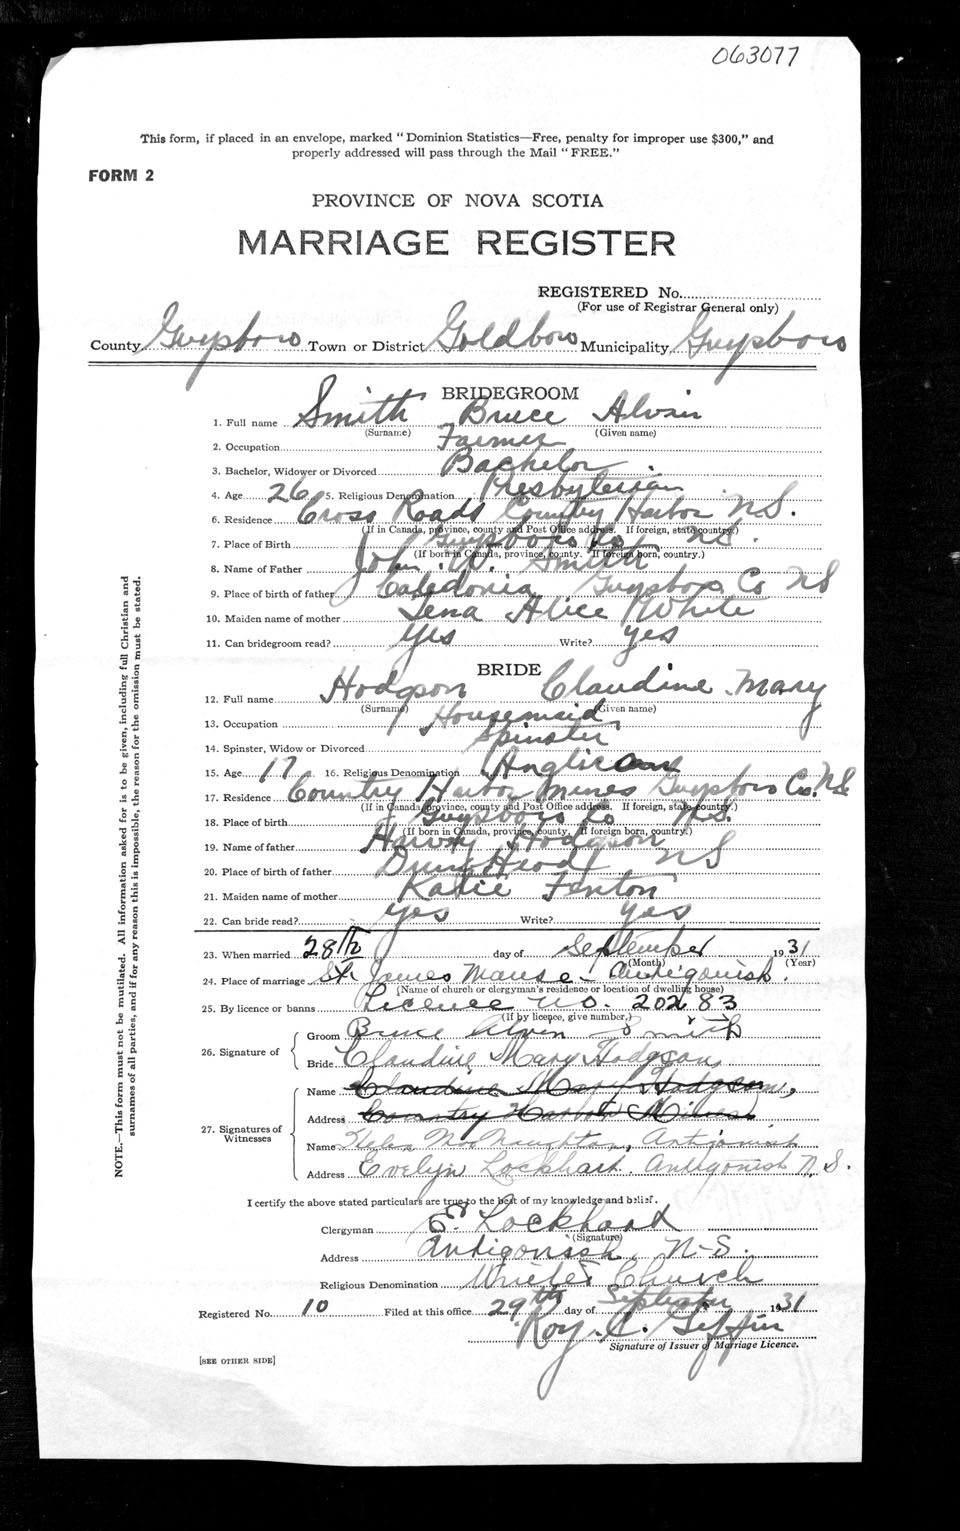 063077
This form, if placed in an envelope, marked "Dominion Statistics—Free, penalty for improper use $300," and
properly addressed will pass through the Mail "FREE."
FORM 2
PROVINCE OF NOVA SCOTIA
MARRIAGE REGISTER
REGISTERED No.
(For use of Registrar General only)
County Guysboro Town or District Goldboro Municipality Guysboro
BRIDEGROOM
1. Full name Smith Bruce Alvin
(Surname) (Given name)
2. Occupation Farmer
3. Bachelor, Widower or Divorced Bachelor
4. Age 26 5. Religious Denomination Presbyterian
6. Residence Cross Roads Country Harbor N.S.
(If in Canada, province, county and Post Office address. If foreign, state country.)
7. Place of Birth Guysboro Co N.S.
(If born in Canada, province, county. If foreign born, country.)
8. Name of Father John W. Smith
9. Place of birth of father Caledonia Guysboro Co NS
10. Maiden name of mother Lena Alice White
11. Can bridegroom read? yes Write? yes
BRIDE
12. Full name Hodgson Claudine Mary
(Surname) (Given name)
13. Occupation Housemaid
14. Spinster, Widow or Divorced Spinster
15. Age 17 16. Religious Denomination Anglican
17. Residence Country Harbor Mines Guysboro Co. NS
(If in Canada, province, county and Post Office address. If foreign, state country.)
18. Place of birth Guysboro Co N.S.
(If born in Canada, province, county. If foreign born, country.)
19. Name of father Harvey Hodgson
20. Place of birth of father NS
21. Maiden name of mother Katie Fenton
22. Can bride read? yes Write? yes
23. When married 28th day of September 1931
(Month) (Year)
24. Place of marriage St. James Manse - Antigonish
(Name of church or clergyman's residence or location of dwelling house)
25. By licence or banns Licence no. 202683
(If by licence, give number.)
26. Signature of
Groom Bruce Alvin Smith
Bride Claudine Mary Hodgson
27. Signatures of Witnesses
Name Claudine Mary Hodgson,
Address Country Harbor Mines
Name Helen MacNaughton, Antigonish
Address Evelyn Lockhart Antigonish N.S.
I certify the above stated particulars are true to the best of my knowledge and belief.
Clergyman E. Lockhart
(Signature)
Address Antigonish, N.S.
Religious Denomination United Church
Registered No. 10 Filed at this office 29th day of September 1931
Roy C. Giffin
Signature of Issuer of Marriage Licence.
[SEE OTHER SIDE]
NOTE.—This form must not be mutilated. All information asked for is to be given, including full Christian and
surnames of all parties, and if for any reason this is impossible, the reason for the omission must be stated.